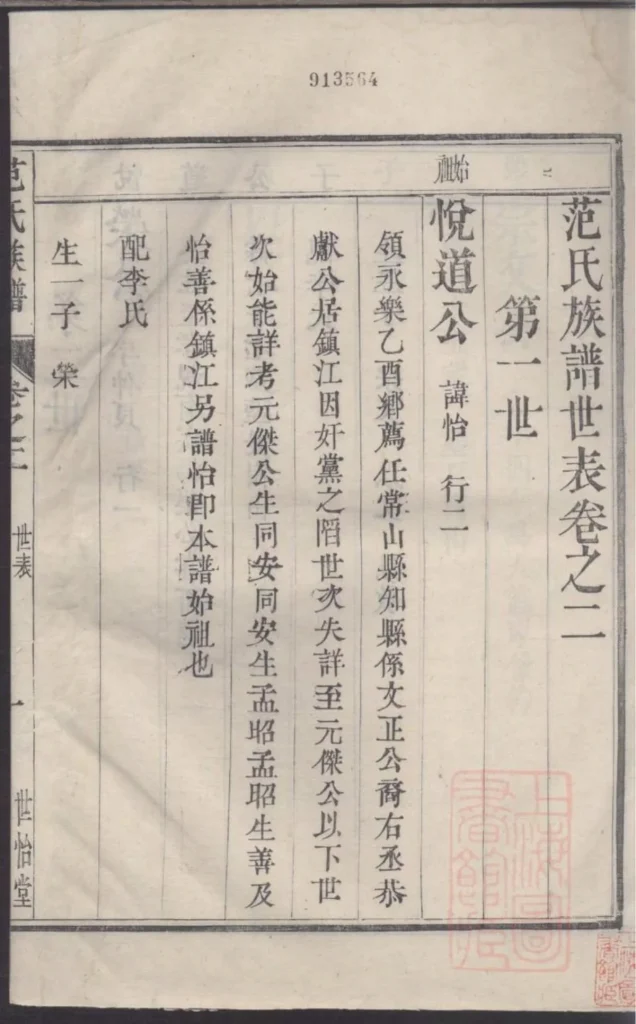 913564
范氏族譜世表卷之二
第一世
始祖
悅道公 諱怡 行二
領永樂乙酉鄉薦任常山縣知縣係文正公裔右丞恭
獻公居鎮江因奸黨之陷世次失詳至元傑公以下世
次始能詳考元傑公生同安同安生孟昭孟昭生善及
怡善係鎮江另譜怡即本譜始祖也
配李氏
生一子 榮
范氏族譜 卷之二 世表 一 世怡堂
上海圖書館藏